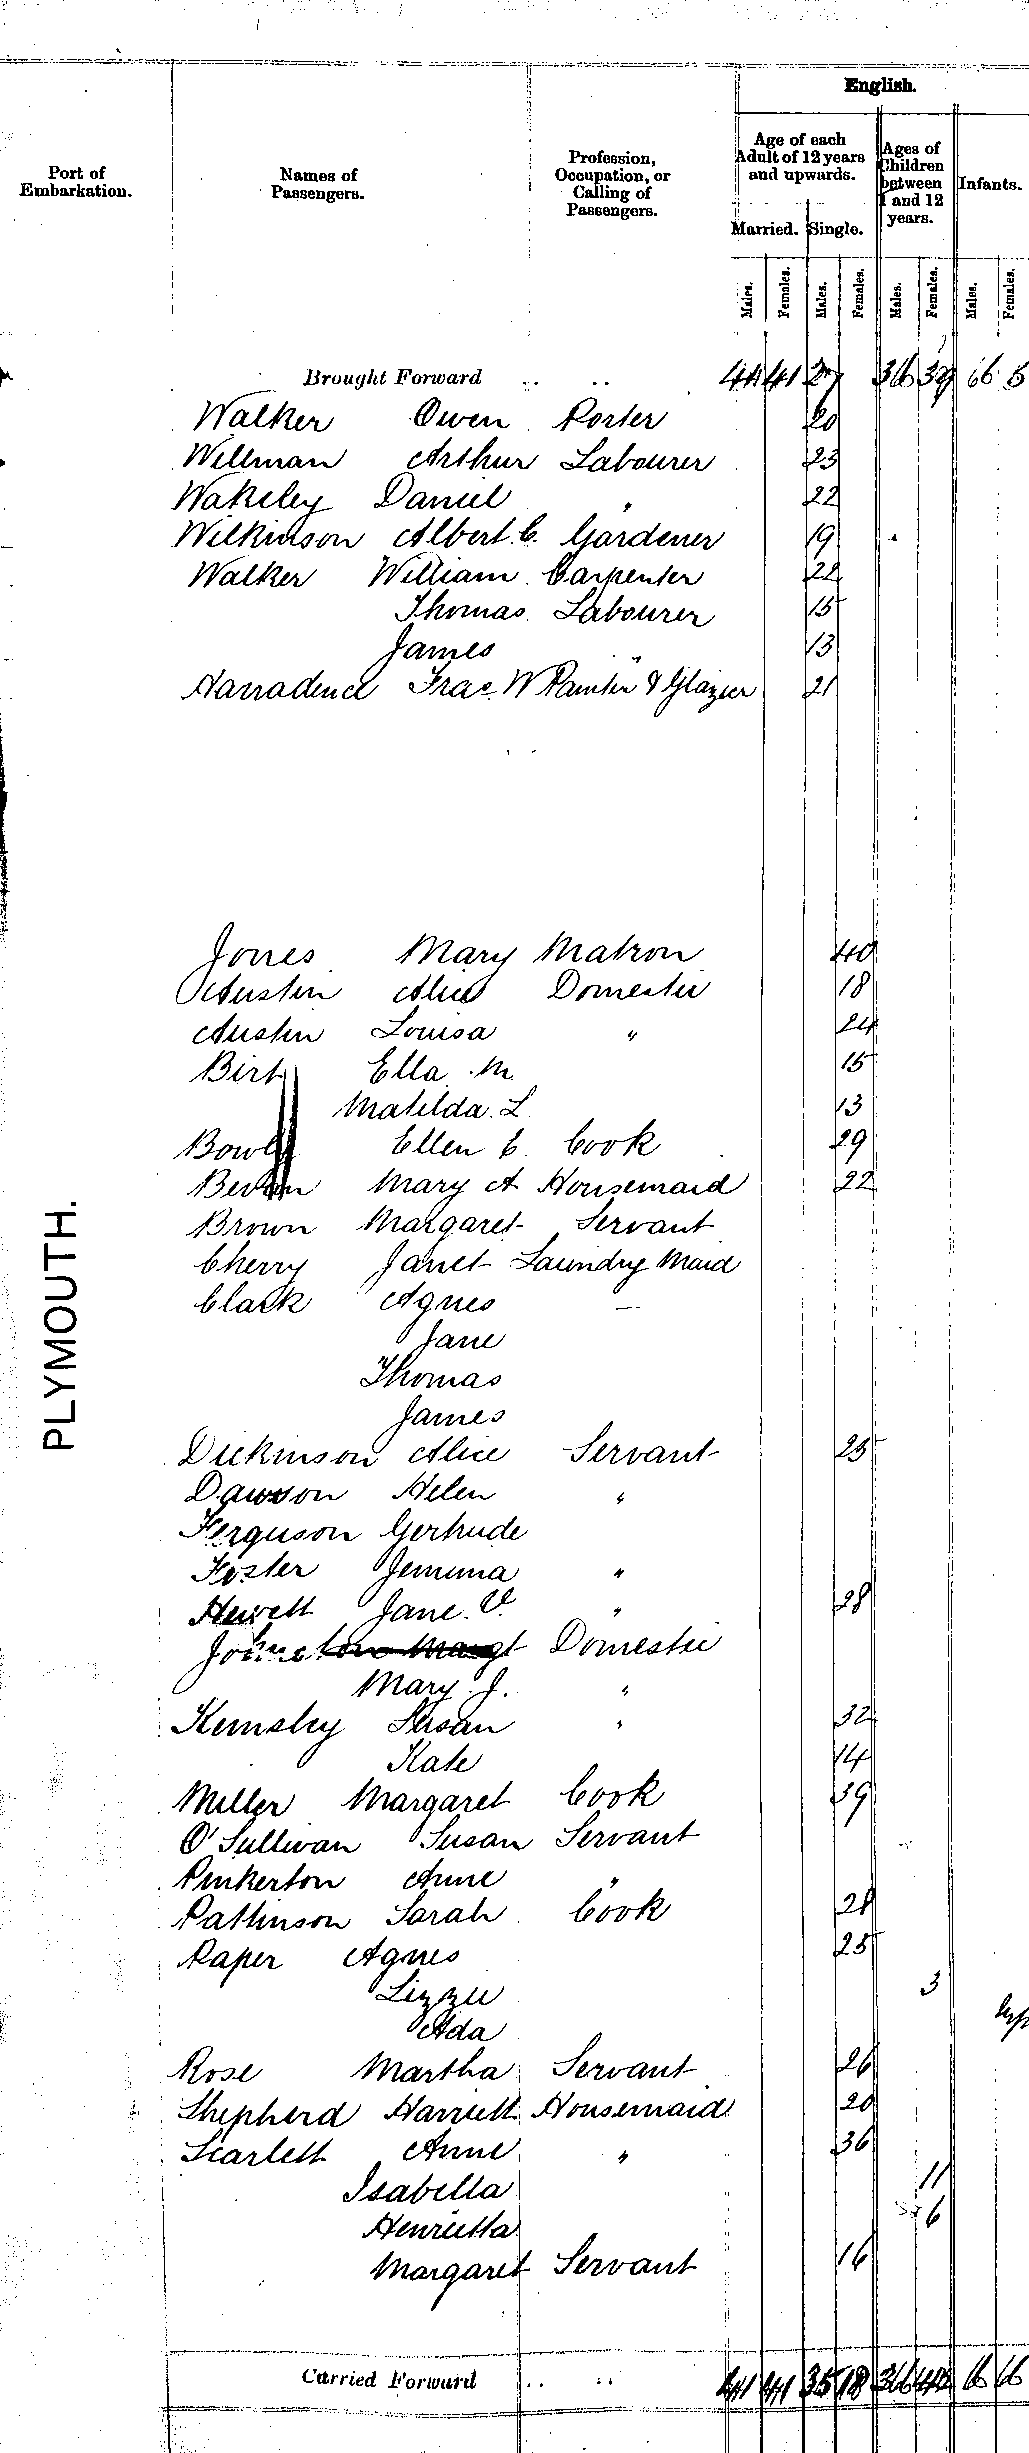 English.
Port of Embarkation.
Names of Passengers.
Profession, Occupation, or Calling of Passengers.
Age of each Adult of 12 years and upwards.
Ages of Children between 1 and 12 years.
Infants.
Married. Single.
Males. Females. Males. Females. Males. Females. Males. Females.
Brought Forward .. .. 41 41 27 36 39 6 5
Walker Owen Porter 20
Wellman Arthur Labourer 23
Wakeley Daniel " 22
Wilkinson Albert C. Gardener 19
Walker William Carpenter 22
Thomas Labourer 15
James " 13
Frac W Painter & Glazier 21
PLYMOUTH.
Jones Mary Matron 40
Austin Alice Domestic 18
Austin Louisa " 24
Birt Ella M. 15
Matilda L 13
Ellen E. Cook 29
Mary A Housemaid 22
Brown Margaret Servant
Cherry Janet Laundry Maid
Clark Agnes —
Jane
Thomas
James
Dickinson Alice Servant 25
Dawson Helen "
Ferguson Gertrude
Foster Jemima "
Hewett Jane V. " 28
Johnston Margt Domestic
Mary J. "
Kemsley Susan " 32
Kate 14
Miller Margaret Cook 39
O'Sullivan Susan Servant
Pinkerton Anne "
Pattinson Sarah Cook 28
Raper Agnes 25
Lizzie 3
Ada
Rose Martha Servant 26
Shepherd Harriett Housemaid 20
Scarlett Anne " 36
Isabella 11
Henrietta 6
Margaret Servant 16
Carried Forward .. .. 41 41 35 18 36 42 6 6